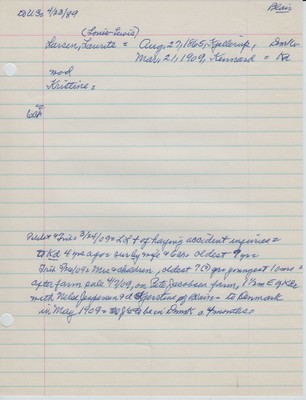 to U.S. 4/23/89
Blair
(Louis-Lewis)
Larsen, Laurits = Aug. 27, 1865, Kjellerup, Dmk-
Mar. 21, 1909, Kennard = Kd
mod
Kristine =
Pilot & Trib 3/24/09 = Ld + of haying accident injuries =
to Kd 4 yrs ago = surv by wife & 6 ch oldest 9 yrs
Trib = Mrs & children, oldest 9 yrs youngest 10 mo =
after farm sale 4/7/09, on Pete Jacobsen farm, 1½ m E of Kd
with Nelse Jespersen & of Blair = to Denmark
in May 1909 = to be in Dmk 4 months =